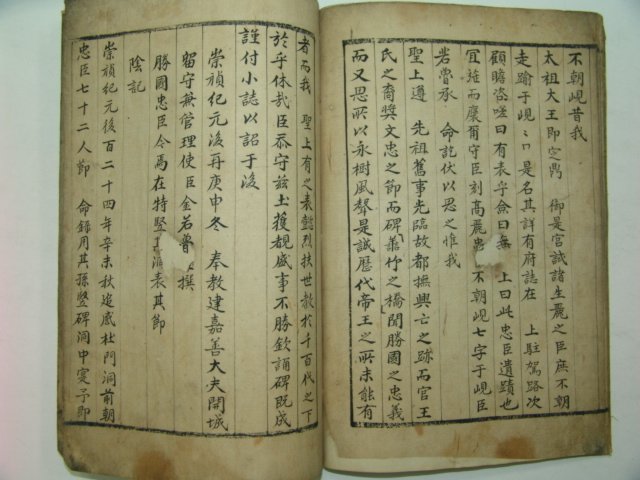 不朝峴昔我
太祖大王卽定鼎 御是宮試諸生麗之臣庶不朝
走踰于峴峴 是名其詳有府誌在 上駐駕路次
顧瞻咨嗟曰有表乎僉曰無 上曰此忠臣遺蹟也
宜旌而褒爾守臣刻高麗忠 不朝峴七字于峴臣
若魯承 命訖伏以思之惟我
聖上遵 先祖舊事先臨故都撫興亡之跡而官王
氏之裔奬文忠之節而碑善竹之橋聞勝國之忠義
而又思所以永樹風聲是誠歷代帝王之所未能有
者而我 聖上有之表懿烈扶世敎於千百代之下
於乎休哉臣忝守玆土獲覩盛事不勝欽誦碑旣成
謹付小誌以詔于後
崇禎紀元後再庚申冬 奉敎建嘉善大夫開城
留守兼管理使臣金若魯 撰
勝國忠臣今焉在特竪其洞表其節
陰記
崇禎紀元後百二十四年辛未秋追感杜門洞前朝
忠臣七十二人節 命錄用其孫竪碑洞中寔予卽